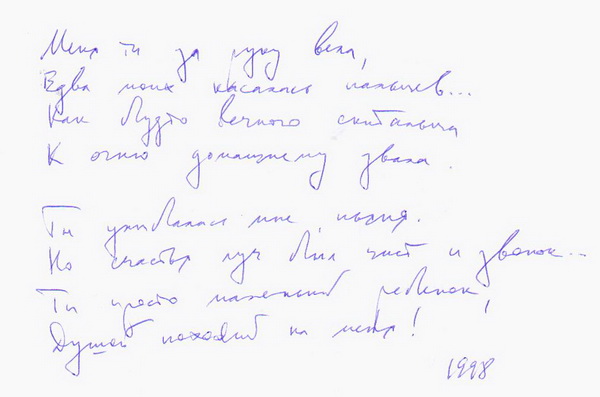 Меня ты за руку вела,
Едва моих касалась пальцев...
Как будто вечного скитальца
К огню домашнему звала.
Ты улыбалась мне,
Но счастья луч был чист и звонок...
Ты просто маленький ребенок,
Душой похожий на меня!
1998